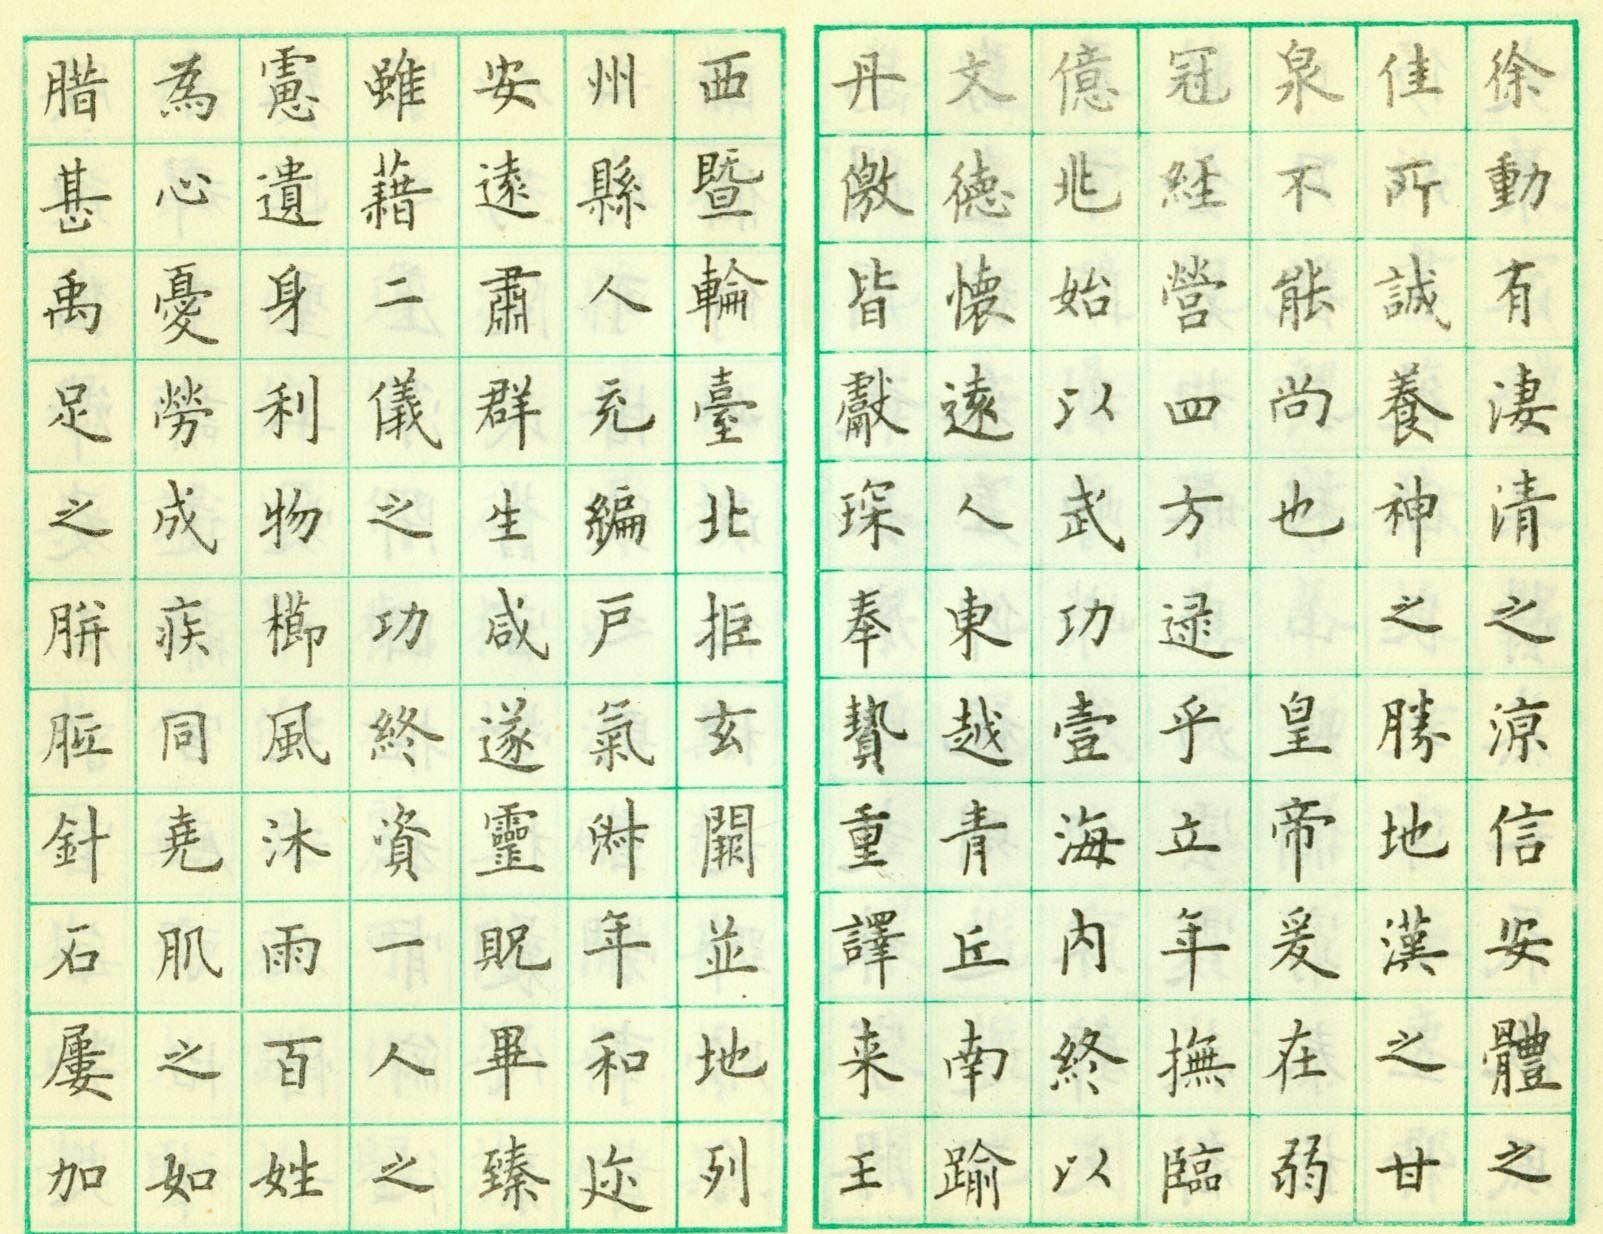 徐動有淒清之涼信安體之
佳所誠養神之勝地漢之甘
泉不能尚也皇帝爰在弱
冠經營四方逮乎立年撫臨
億兆始以武功壹海內終以
文德懷遠人東越青丘南踰
丹徼皆獻琛奉贄重譯来王
西暨輪臺北拒玄闕並地列
州縣人充編戶氣淑年和迩
安遠肅群生咸遂靈貺畢臻
雖藉二儀之功終資一人之
慮遺身利物櫛風沐雨百姓
為心憂勞成疾同堯肌之如
腊甚禹足之胼胝針石屢加